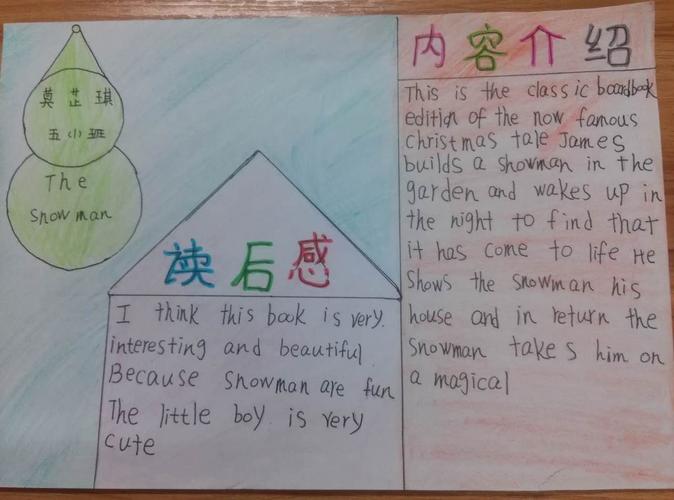 莫芷琪
五小班
The
Snowman
读后感
I think this book is very.
interesting and beautiful
Because snowman are fun
The little boy is very
cute
内容介绍
This is the classic boardbook
edition of the now famous
christmas tale James
builds a snowman in the
garden and wakes up in
the night to find that
it has come to life He
shows the snowman his
house and in return the
snowman takes him on
a magical